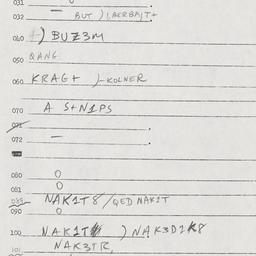 031
032 — BUT ) LAERBAJT+
040 +) BUZ3M
050 QANG
060 KRAG+ )-KOLNER
070 A S+N1PS
071
072 —
080 O
081 O
085 NAK1T8 / QED NAK1T
090 O
100 NAK1T ) NAK3D2K8
101 NAK3TR,